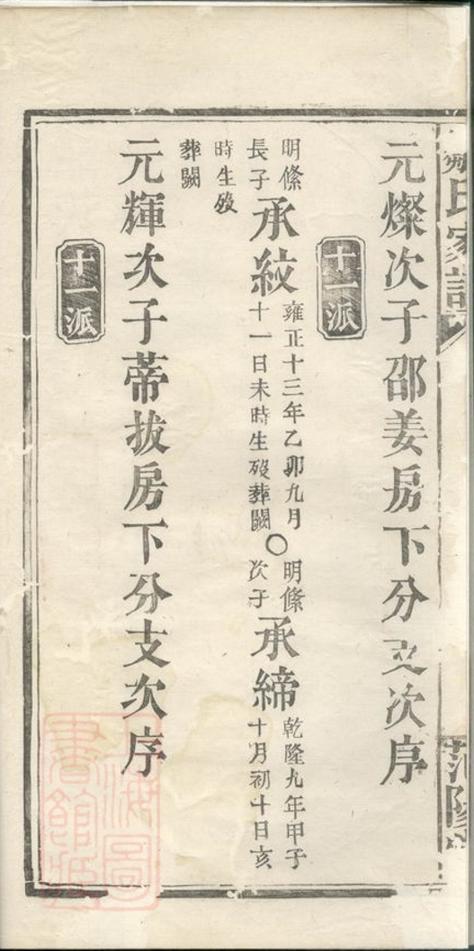 氏家譜
范陽
元燦次子邵姜房下分支次序
十一派
明絛長子
承紋
雍正十三年乙卯九月
十一日未時生歿葬闕
○
明絛次子
承締
乾隆九年甲子
十月初十日亥
時生歿
葬闕
元輝次子蒂拔房下分支次序
十一派
上海圖
書館藏